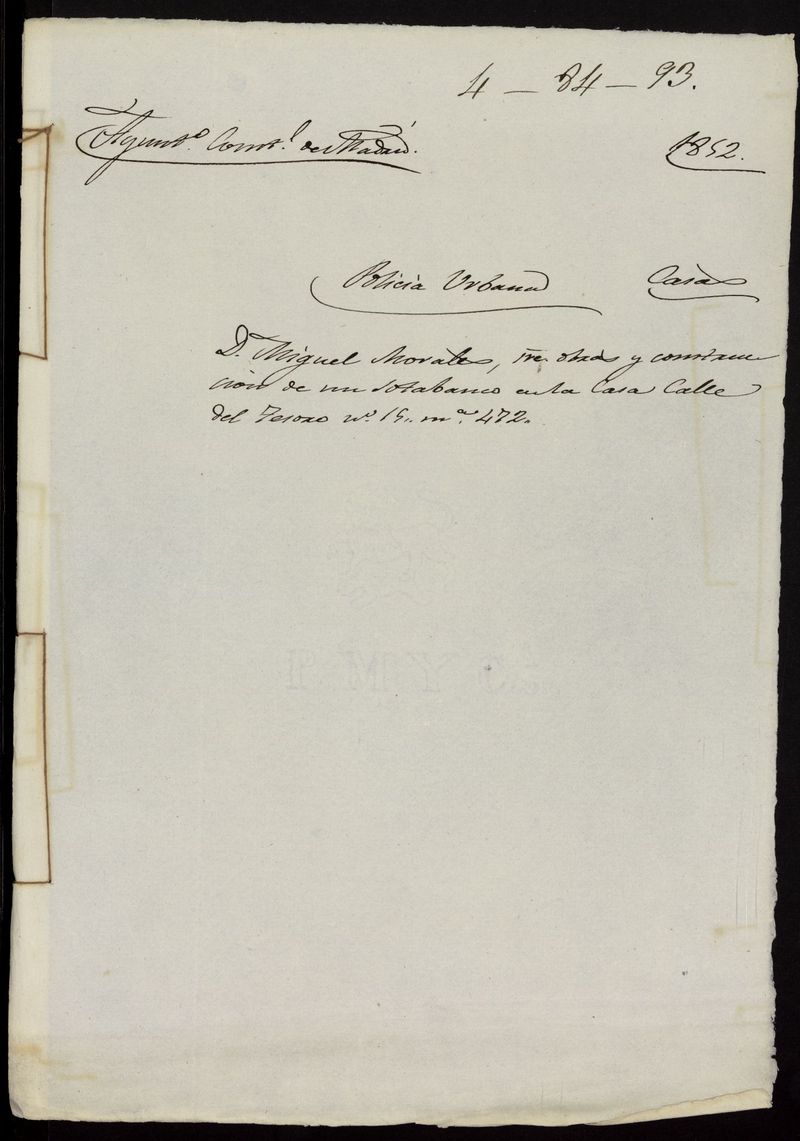 4 — 84 — 93.
Ayunt.º Const.l de Madrid. 1852.
Policia Urbana Casas
D. Miguel Morales, sre obras y construc
cion de un sotabanco en la Casa Calle
del Tesoro nº 15. m.na 472.